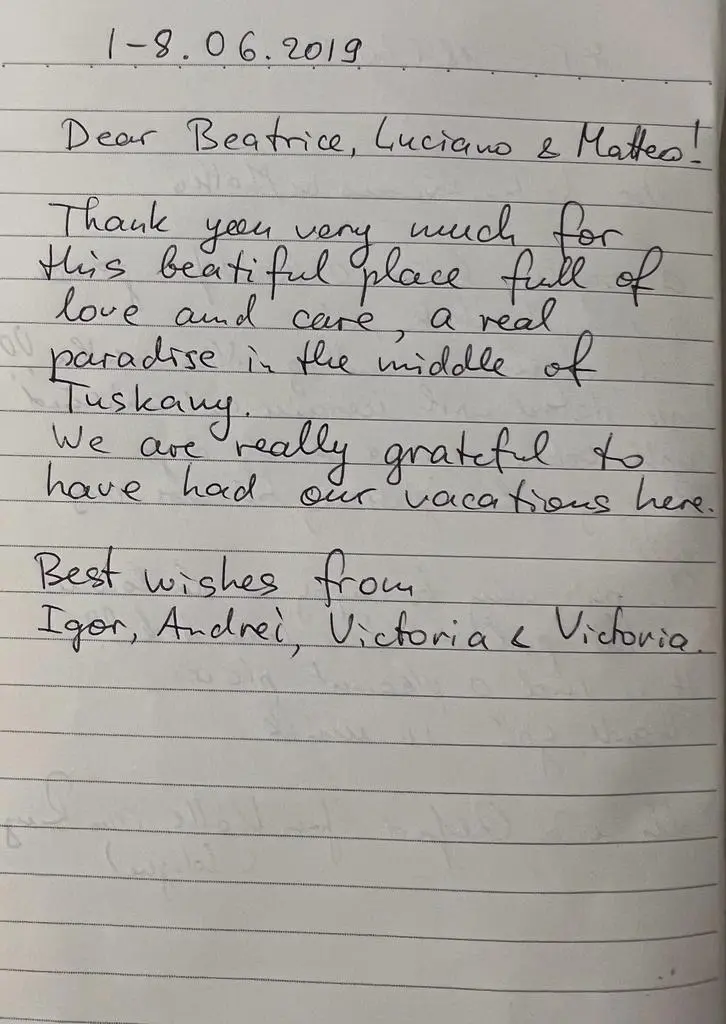 1-8.06.2019
Dear Beatrice, Luciano & Matteo!
Thank you very much for
this beatiful place full of
love and care, a real
paradise in the middle of
Tuskany.
We are really grateful to
have had our vacations here.
Best wishes from
Igor, Andrei, Victoria & Victoria.